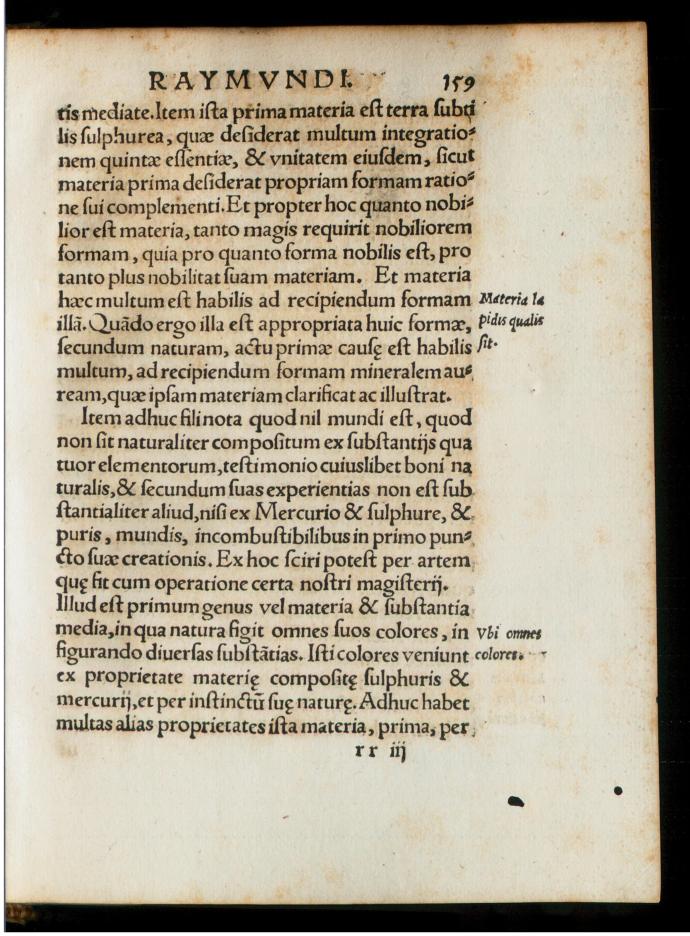 RAYMVNDI. 159
tis mediate. Item iſta prima materia eſt terra ſubti
lis ſulphurea, quæ deſiderat multum integratio⸗
nem quintæ eſſentiæ, & vnitatem eiuſdem, ſicut
materia prima deſiderat propriam formam ratio⸗
ne ſui complementi. Et propter hoc quanto nobi⸗
lior eſt materia, tanto magis requirit nobiliorem
formam, quia pro quanto forma nobilis eſt, pro
tanto plus nobilitat ſuam materiam. Et materia
hæc multum eſt habilis ad recipiendum formam
illā. Quādo ergo illa eſt appropriata huic formæ,
ſecundum naturam, actu primæ cauſę eſt habilis
multum, ad recipiendum formam mineralem au⸗
ream, quæ ipſam materiam clarificat ac illuſtrat.
Materia la
pidis qualis
ſit.
Item adhuc fili nota quod nil mundi eſt, quod
non ſit naturaliter compoſitum ex ſubſtantijs qua
tuor elementorum, teſtimonio cuiuslibet boni na
turalis, & ſecundum ſuas experientias non eſt ſub
ſtantialiter aliud, niſi ex Mercurio & ſulphure, &
puris, mundis, incombuſtibilibus in primo pun⸗
cto ſuæ creationis. Ex hoc ſciri poteſt per artem
quę fit cum operatione certa noſtri magiſterij.
Illud eſt primum genus vel materia & ſubſtantia
media, in qua natura figit omnes ſuos colores, in
figurando diuerſas ſubſtātias. Iſti colores veniunt
ex proprietate materię compoſitę ſulphuris &
mercurij, et per inſtinctū ſuę naturę. Adhuc habet
multas alias proprietates iſta materia, prima, per
Vbi omnes
colores.
rr iij